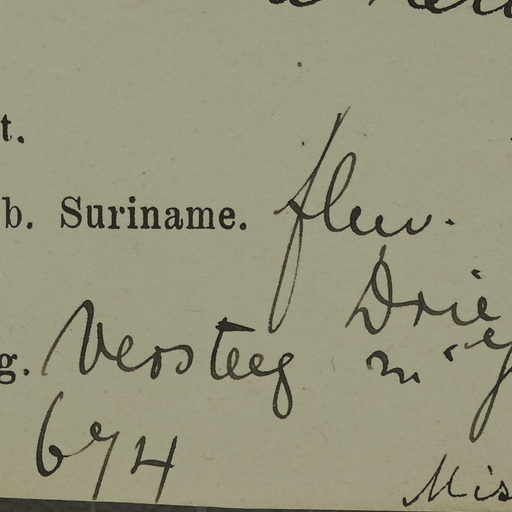 t.
b. Suriname. fluv.
Drie
g. Versteeg
674
Mis